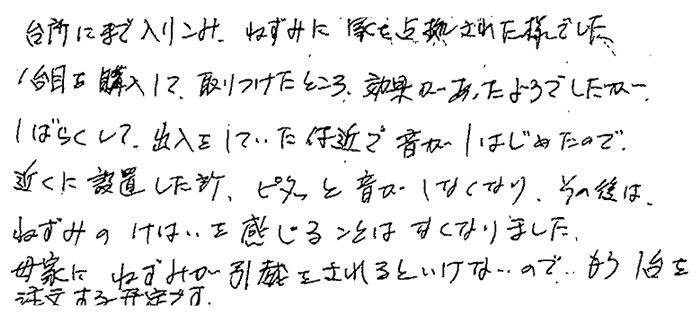 台所にまで入りこみ、ねずみに家を占拠された様でした。
1台目を購入して、取りつけたところ、効果があったようでしたが、
しばらくして、出入をしていた付近で音がしはじめたので、
近くに設置した所、ピタッと音がしなくなり、その後は、
ねずみのけはいを感じることはなくなりました。
母家にねずみが引越をされるといけないので、もう1台を
注文する予定です。